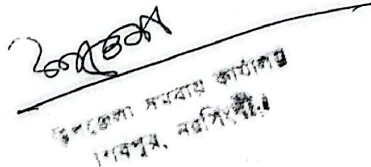 উপজেলা সমবায় কার্যালয়
শিবপুর, নরসিংদী।